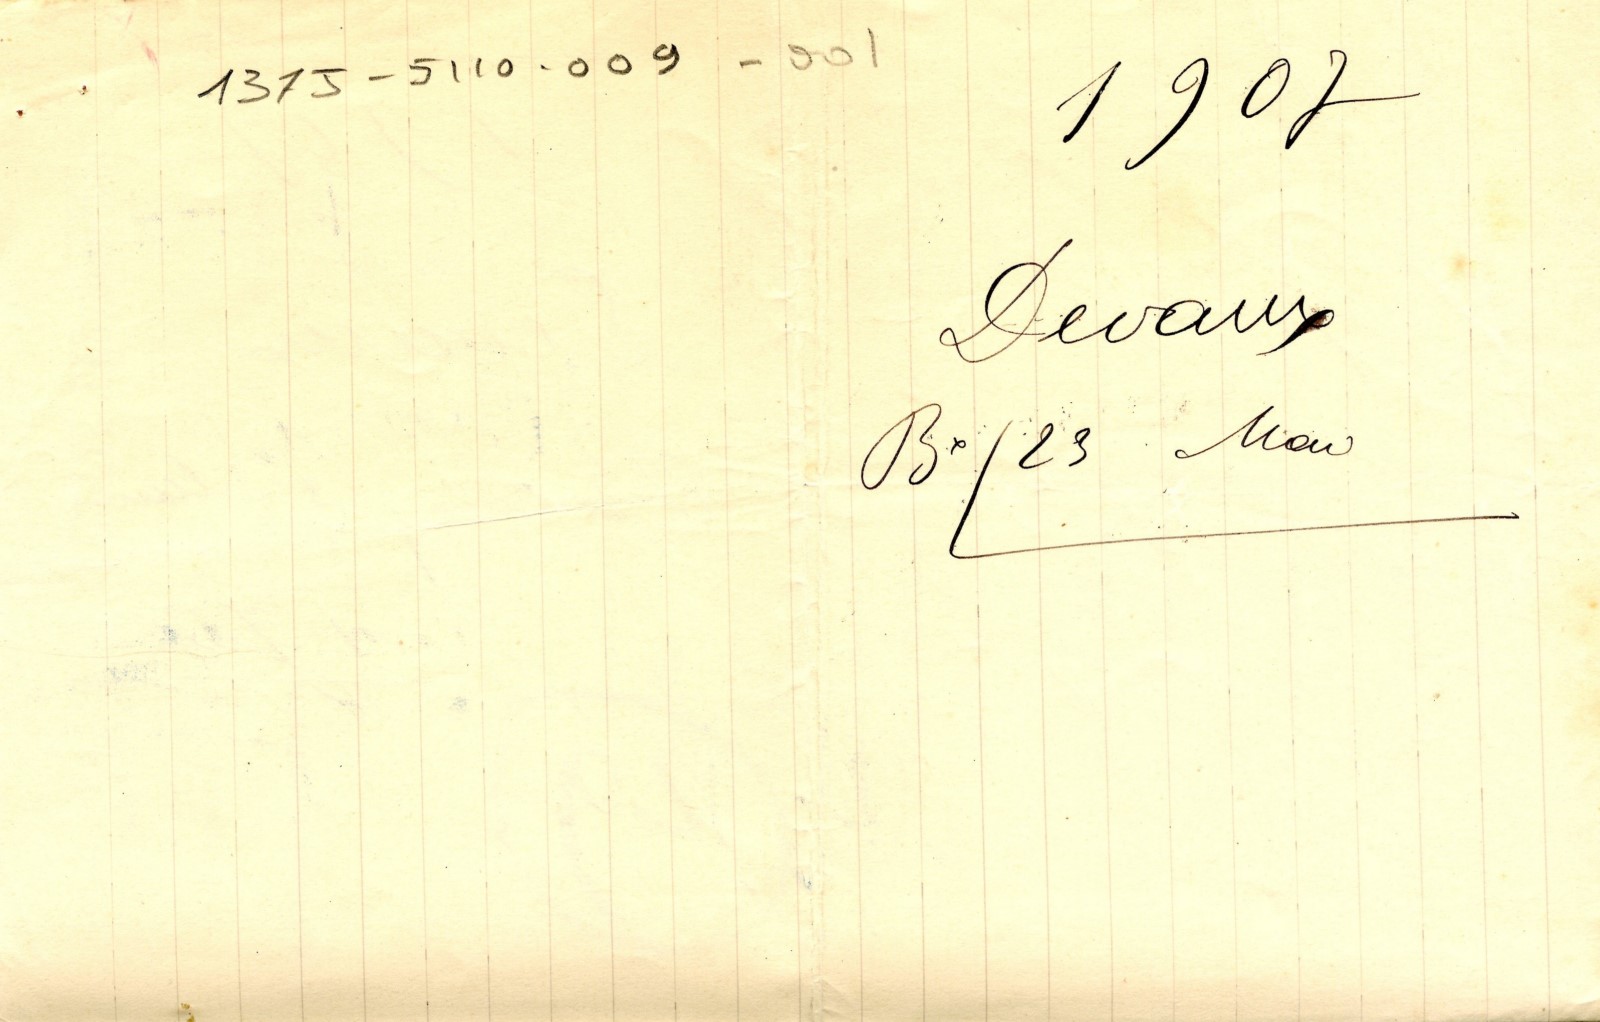 137J-5110-009-001
1907
Devaux
Bx/23 Mai